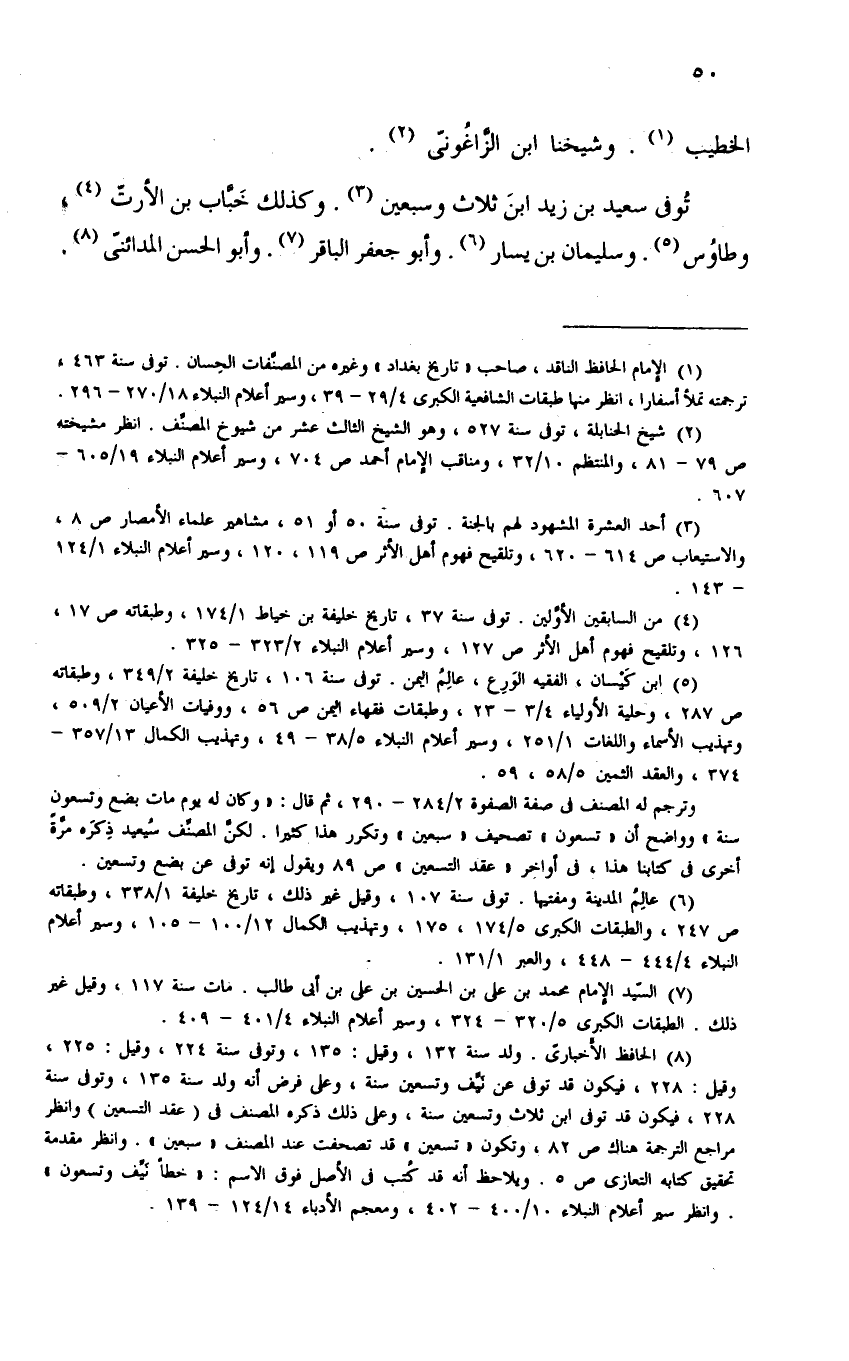 ٥٠
الخطيب (١) . وشيخنا ابن الزَّاغُونىّ (٢) .
تُوفى سعيد بن زيد ابنَ ثلاث وسبعين (٣) . وكذلك خَبَّاب بن الأرتّ (٤) ،
وطاوُس (٥) . وسليمان بن يسار (٦) . وأبو جعفر الباقر (٧) . وأبو الحسن المدائنىّ (٨) .
(١) الإمام الحافظ الناقد ، صاحب « تاريخ بغداد » وغيره من المصنَّفات الحِسان . توفى سنة ٤٦٣ ،
ترجمته تملأ أسفارا ، انظر منها طبقات الشافعية الكبرى ٢٩/٤ – ٣٩ ، وسير أعلام النبلاء ٢٧٠/١٨ – ٢٩٦ .
(٢) شيخ الحنابلة ، توفى سنة ٥٢٧ ، وهو الشيخ الثالث عشر من شيوخ المصنِّف . انظر مشيخته
ص ٧٩ – ٨١ ، والمنتظم ٣٢/١٠ ، ومناقب الإمام أحمد ص ٧٠٤ ، وسير أعلام النبلاء ٦٠٥/١٩ –
٦٠٧ .
(٣) أحد العشرة المشهود لهم بالجنة . توفى سنة ٥٠ أو ٥١ ، مشاهير علماء الأمصار ص ٨ ،
والاستيعاب ص ٦١٤ – ٦٢٠ ، وتلقيح فهوم أهل الأثر ص ١١٩ ، ١٢٠ ، وسير أعلام النبلاء ١٢٤/١
– ١٤٣ .
(٤) من السابقين الأوَّلين . توفى سنة ٣٧ ، تاريخ خليفة بن خياط ١٧٤/١ ، وطبقاته ص ١٧ ،
١٢٦ ، وتلقيح فهوم أهل الأثر ص ١٢٧ ، وسير أعلام النبلاء ٣٢٣/٢ – ٣٢٥ .
(٥) ابن كَيْسان ، الفقيه الوَرِع ، عالِمُ اليمن . توفى سنة ١٠٦ ، تاريخ خليفة ٣٤٩/٢ ، وطبقاته
ص ٢٨٧ ، وحلية الأولياء ٣/٤ – ٢٣ ، وطبقات فقهاء اليمن ص ٥٦ ، ووفيات الأعيان ٥٠٩/٢ ،
وتهذيب الأسماء واللغات ٢٥١/١ ، وسير أعلام النبلاء ٣٨/٥ – ٤٩ ، وتهذيب الكمال ٣٥٧/١٣ –
٣٧٤ ، والعقد الثمين ٥٨/٥ ، ٥٩ .
وترجم له المصنف فى صفة الصفوة ٢٨٤/٢ – ٢٩٠ ، ثم قال : « وكان له يوم مات بضع وتسعون
سنة » وواضح أن « تسعون » تصحيف « سبعين » وتكرر هذا كثيرا . لكنَّ المصنِّف سُيعيد ذِكرَه مرَّةً
أخرى فى كتابنا هذا ، فى أواخر « عقد التسعين » ص ٨٩ ويقول إنه توفى عن بضع وتسعين .
(٦) عالِمُ المدينة ومفتيها . توفى سنة ١٠٧ ، وقيل غير ذلك ، تاريخ خليفة ٣٣٨/١ ، وطبقاته
ص ٢٤٧ ، والطبقات الكبرى ١٧٤/٥ ، ١٧٥ ، وتهذيب الكمال ١٠٠/١٢ – ١٠٥ ، وسير أعلام
النبلاء ٤٤٤/٤ – ٤٤٨ ، والعبر ١٣١/١ .
(٧) السيّد الإمام محمد بن على بن الحسين بن على بن أبى طالب . مات سنة ١١٧ ، وقيل غير
ذلك . الطبقات الكبرى ٣٢٠/٥ – ٣٢٤ ، وسير أعلام النبلاء ٤٠١/٤ – ٤٠٩ .
(٨) الحافظ الأخبارىّ . ولد سنة ١٣٢ ، وقيل : ١٣٥ ، وتوفى سنة ٢٢٤ ، وقيل : ٢٢٥ ،
وقيل : ٢٢٨ ، فيكون قد توفى عن نيّف وتسعين سنة ، وعلى فرض أنه ولد سنة ١٣٥ ، وتوفى سنة
٢٢٨ ، فيكون قد توفى ابن ثلاث وتسعين سنة ، وعلى ذلك ذكره المصنف فى ( عقد التسعين ) وانظر
مراجع الترجمة هناك ص ٨٢ ، وتكون « تسعين » قد تصحفت عند المصنف « سبعين » . وانظر مقدمة
تحقيق كتابه التعازى ص ٥ . ويلاحظ أنه قد كُتب فى الأصل فوق الاسم : « خطأ نَيِّف وتسعون »
. وانظر سير أعلام النبلاء ٤٠٠/١٠ – ٤٠٢ ، ومعجم الأدباء ١٢٤/١٤ – ١٣٩ .